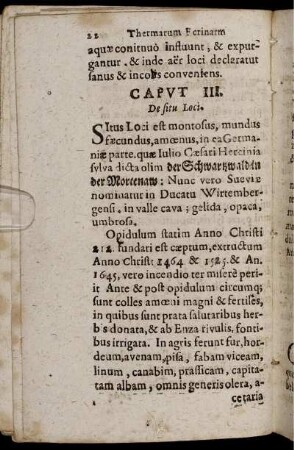 22 Thermarum Ferinarm
aquæ continuò influunt, & expur-
gantur. & inde aër loci declaratur
sanus & incolis conveniens.
CAPVT III.
De situ Loci.
SItus Loci est montosus, mundus
fæcundus, amœnus, in ea Germa-
niæ parte. quæ Iulio Cæsari Hercinia
sylva dicta olim der Schwartzwald in
der Mortenaw: Nunc vero Sueviæ
nominatur in Ducatu Wirtember-
gensi, in valle cava; gelida, opaca,
umbrosa.
Opidulum statim Anno Christi
212 fundari est cæptum, extructum
Anno Christ: 1464 & 1525. & An.
1645, vero incendio ter miserè peri-
it Ante & post opidulum circumq;
sunt colles amœni magni & fertiles,
in quibus sunt prata salutaribus her-
bis donata, & ab Enza rivulis, fonti-
bus irrigata. In agris ferunt fur, hor-
deum, avenam, pisa, fabam viceam,
linum, canabim, prassicam, capita-
tam albam, omnis generis olera, a-
cetaria